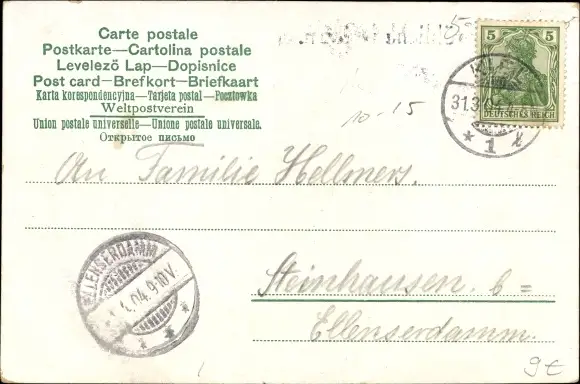 Carte postale
Postkarte—Cartolina postale
Levelező Lap—Dopisnice
Post card—Brefkort—Briefkaart
Karta korespondencyjna—Tarjeta postal—Pocztowka
Weltpostverein
Union postale universelle—Unione postale universale.
Открытое письмо
5 5
DEUTSCHES REICH
31.3.04
* 1 k
10-15
An Familie Hellmers.
ELLENSERDAMM
1.4.04.9-10V.
* * *
Steinhausen b=
Ellenserdamm.
9€